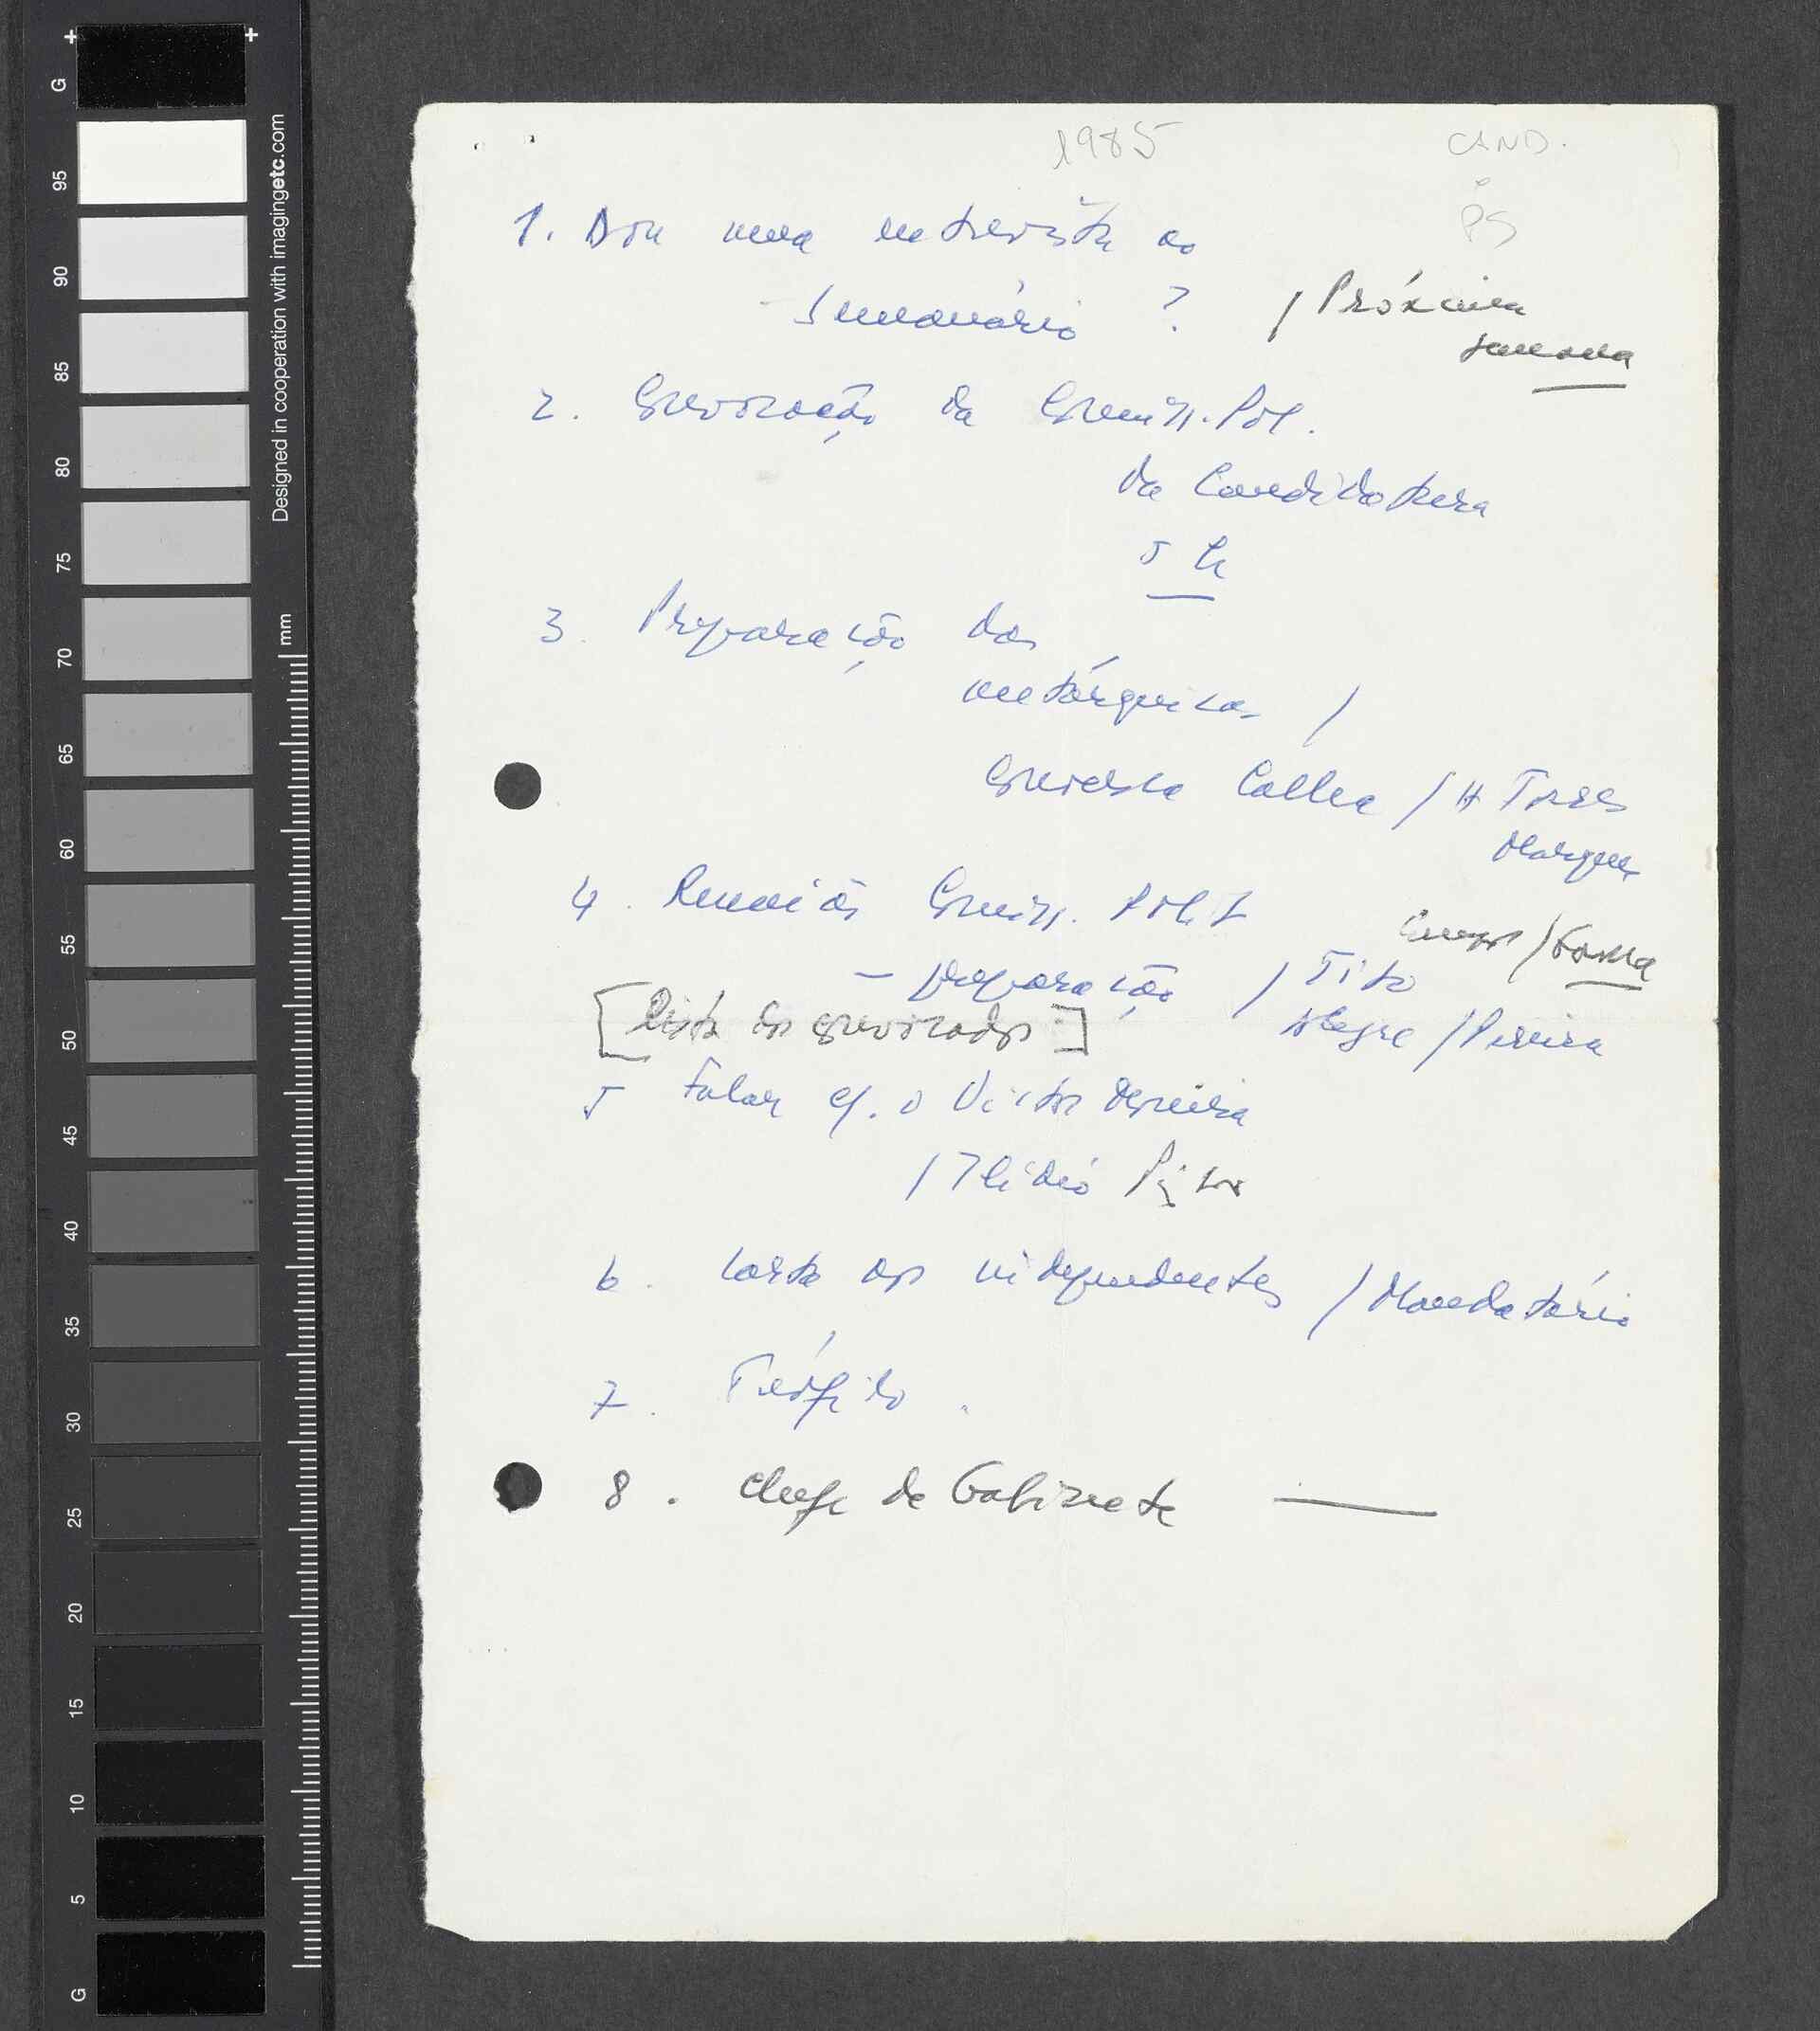 1985
CAND.
PS
1. Dou uma entrevista ao
Semanário ? / Próxima
semana
2. Convocação da Comiss. Pol.
da Candidatura
5 h
3. Preparação das
autárquicas /
conversa Callea / H Torres
Marques
4. Reunião Comiss. Polit
/ Gama
- preparação / Tito
[Lista dos convocados]
Alegre / Pereira
5 Falar c/. o Victor Pereira
/ Ilídio Pinto
6. Carta aos independentes / Mandatário
7. Teófilo
8. Chefe de Gabinete —
Designed in cooperation with imagingetc.com
mm
G
95
90
85
80
75
70
65
60
55
50
45
40
35
30
25
20
15
10
5
G